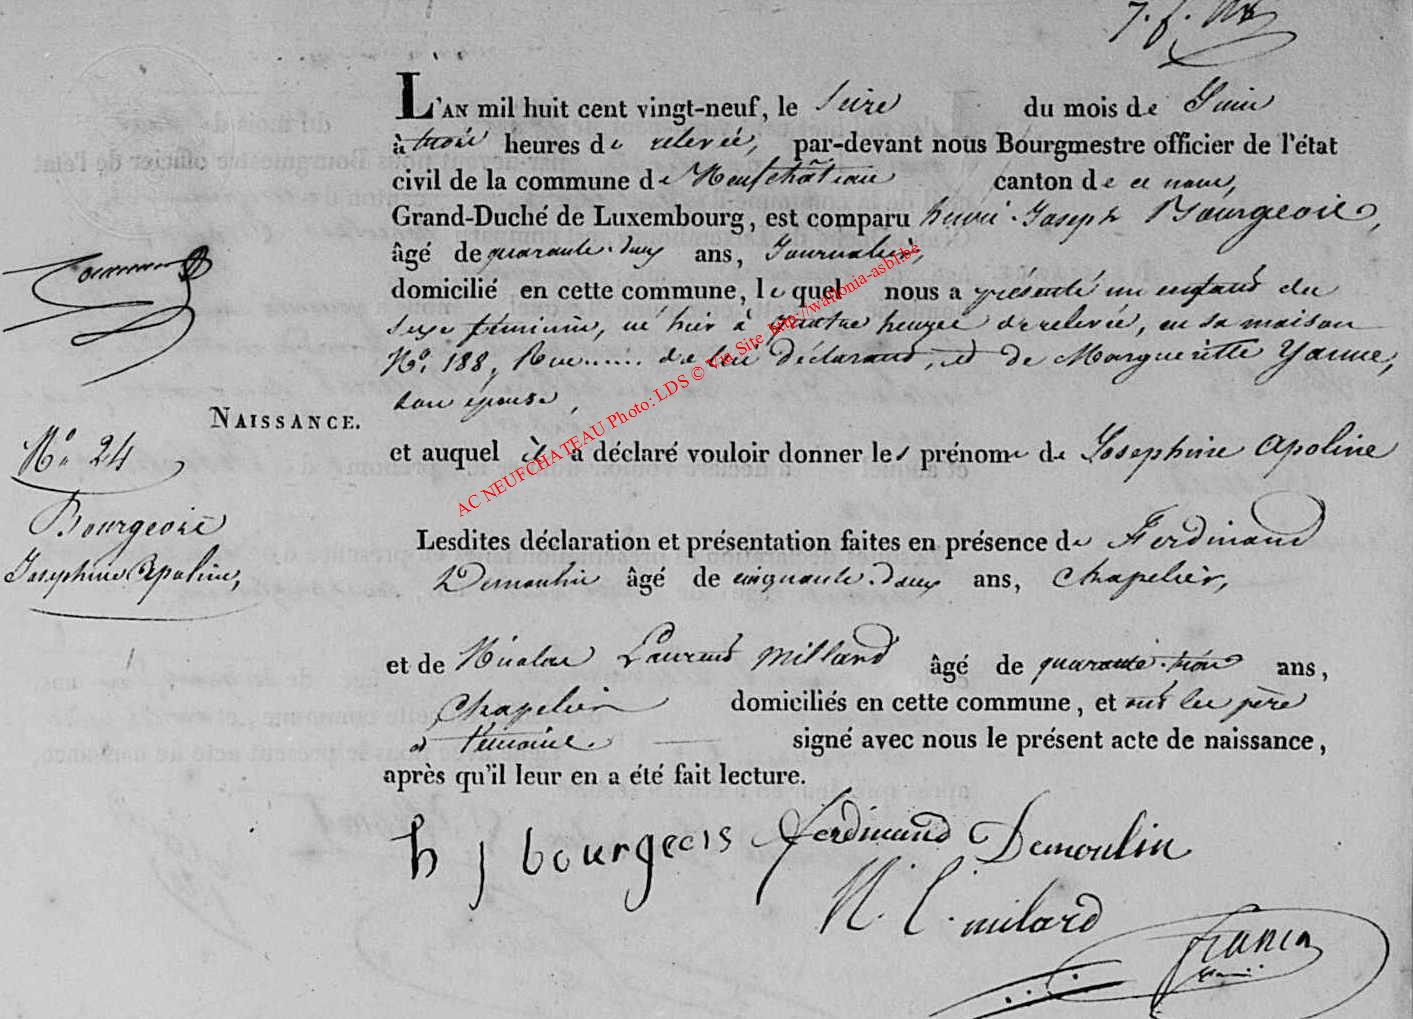 7. f.
L'AN mil huit cent vingt-neuf, le seize du mois de Juin
à trois heures de relevée, par-devant nous Bourgmestre officier de l'état
civil de la commune de Neufchâteau canton de ce nom,
Grand-Duché de Luxembourg, est comparu henri-Joseph Bourgeois,
âgé de quarante-deux ans, Journalier,
domicilié en cette commune, lequel nous a présenté un enfant du
sexe féminin, né hier à quatre heures de relevée, en sa maison
N.º 188, Rue...... de lui déclarant, et de Margueritte Yanne,
son épouse,
NAISSANCE.
N.º 24
Bourgeois
Josephine Apoline,
et auquel il a déclaré vouloir donner les prénoms de Josephine Apoline
Lesdites déclaration et présentation faites en présence de Ferdinand
Demoulin âgé de cinquante-deux ans, Chapelier,
et de Nicolas Laurent Millard âgé de quarante-trois ans,
Chapelier domiciliés en cette commune, et ont les père
et témoins. signé avec nous le présent acte de naissance,
après qu'il leur en a été fait lecture.
h j bourgeois ferdinand Demoulin
N. L. milard
francq
AC NEUFCHATEAU Photo: LDS © Via Site http://wallonia-asbl.be